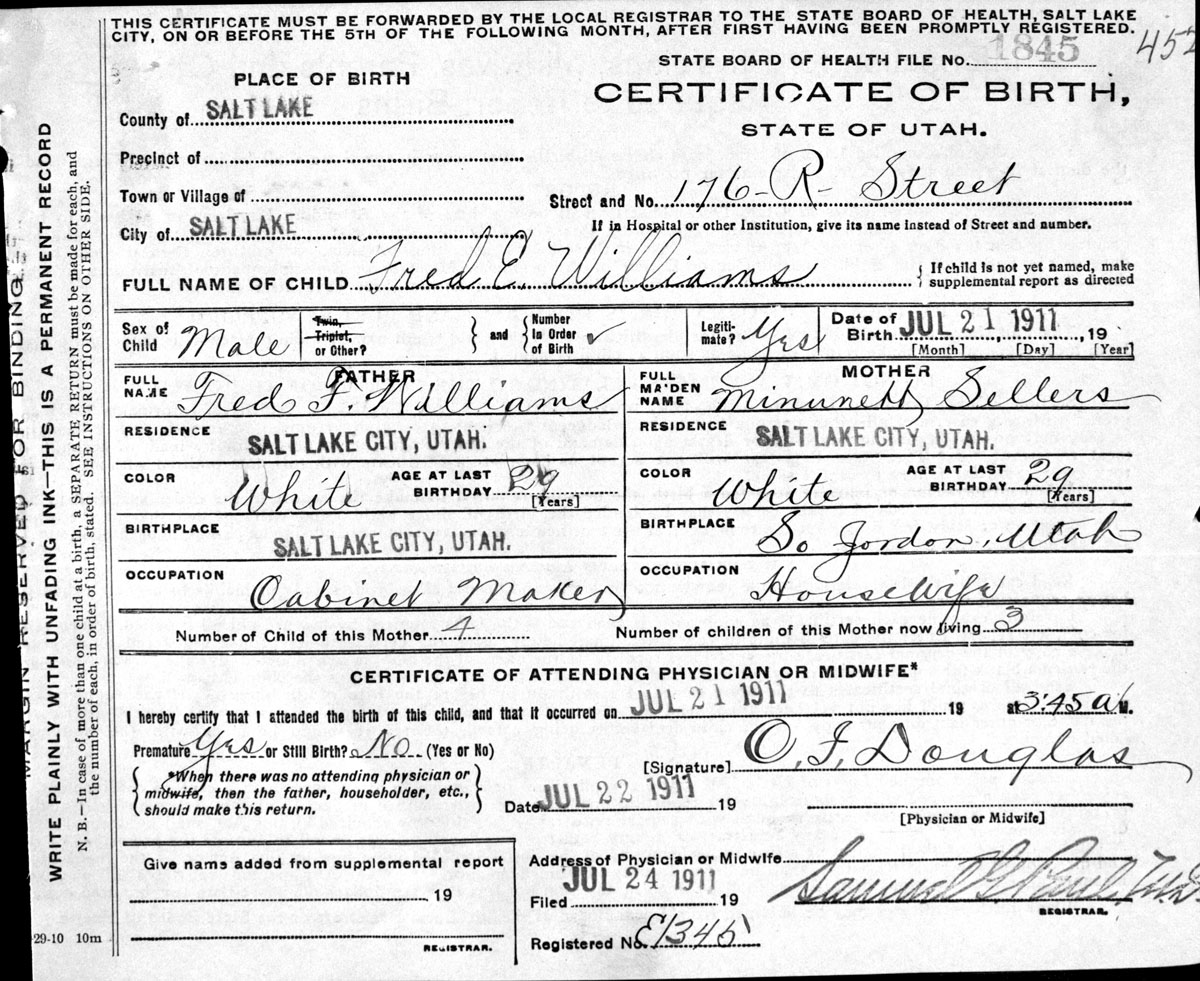 THIS CERTIFICATE MUST BE FORWARDED BY THE LOCAL REGISTRAR TO THE STATE BOARD OF HEALTH, SALT LAKE
CITY, ON OR BEFORE THE 5TH OF THE FOLLOWING MONTH, AFTER FIRST HAVING BEEN PROMPTLY REGISTERED.
452
STATE BOARD OF HEALTH FILE No. 1845
PLACE OF BIRTH
CERTIFICATE OF BIRTH,
STATE OF UTAH.
County of SALT LAKE
Precinct of
Town or Village of
Street and No. 176-R- Street
City of SALT LAKE
If in Hospital or other Institution, give its name instead of Street and number.
FULL NAME OF CHILD Fred E. Williams
{ If child is not yet named, make
supplemental report as directed
Sex of Child Male
Twin, Triplet, or Other? } and { Number in Order of Birth
Legitimate? Yes
Date of Birth JUL 21 1911, 19
[Month] [Day] [Year]
FATHER
FULL NAME Fred F. Williams
RESIDENCE SALT LAKE CITY, UTAH.
COLOR White AGE AT LAST BIRTHDAY 29 [Years]
BIRTHPLACE SALT LAKE CITY, UTAH.
OCCUPATION Cabinet Maker
MOTHER
FULL MAIDEN NAME Sellers
RESIDENCE SALT LAKE CITY, UTAH.
COLOR White AGE AT LAST BIRTHDAY 29 [Years]
BIRTHPLACE So Jordon, Utah
OCCUPATION Housewife
Number of Child of this Mother 4 Number of children of this Mother now living 3
CERTIFICATE OF ATTENDING PHYSICIAN OR MIDWIFE*
I hereby certify that I attended the birth of this child, and that it occurred on JUL 21 1911 19 at 3:45 a M.
Premature Yes or Still Birth? No (Yes or No)
[Signature] O. J. Douglas
{ *When there was no attending physician or
midwife, then the father, householder, etc.,
should make this return. }
Date JUL 22 1911 19
[Physician or Midwife]
Give name added from supplemental report
19
REGISTRAR.
Address of Physician or Midwife
Filed JUL 24 1911 19
Samuel G. Paul
REGISTRAR.
Registered No. E1345
MARGIN RESERVED FOR BINDING.
WRITE PLAINLY WITH UNFADING INK—THIS IS A PERMANENT RECORD
N. B.—In case of more than one child at a birth, a SEPARATE RETURN must be made for each, and
the number of each, in order of birth, stated. SEE INSTRUCTIONS ON OTHER SIDE.
-29-10 10m